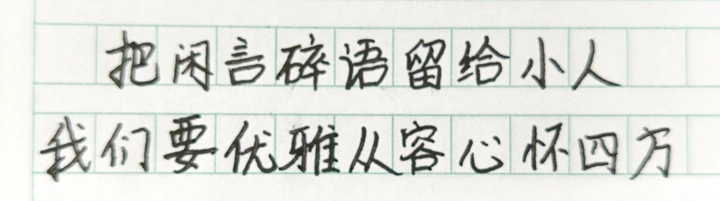 把闲言碎语留给小人
我们要优雅从容心怀四万